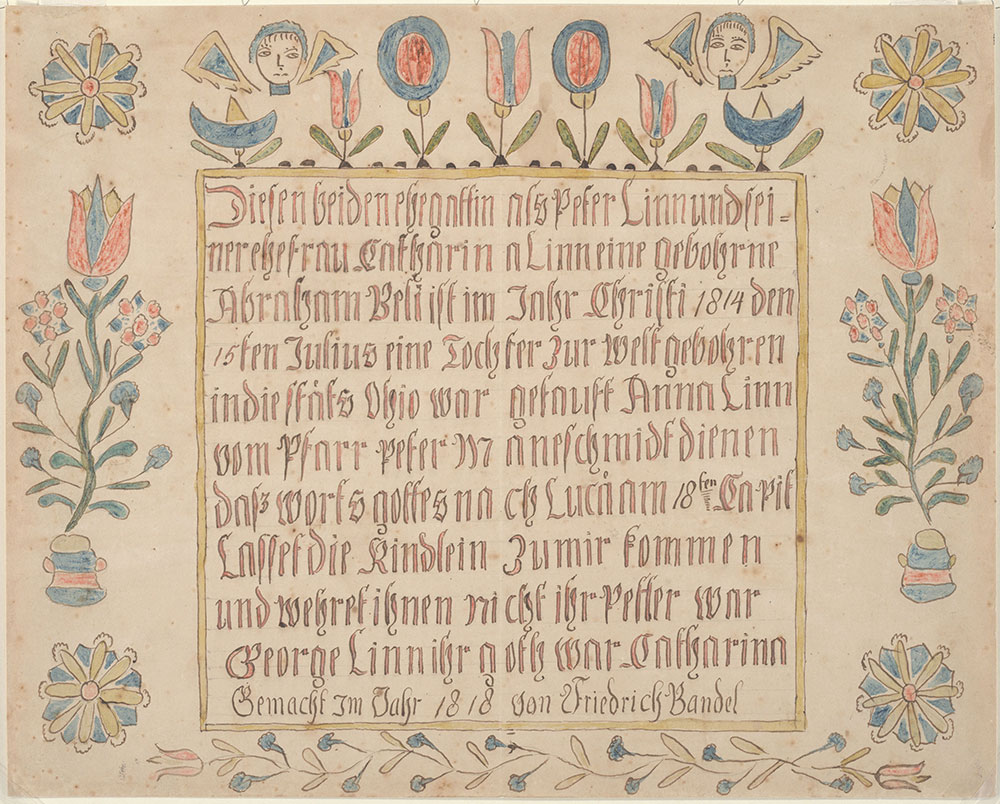 Diesen beiden ehegattin als Peter Linn und sei=
ner ehefrau Catharin a Linn eine gebohrne
Abraham Beli ist im Jahr Christi 1814 den
15ten Julius eine Tochter zur Welt gebohren
in die stäts Ohio war getauft Anna Linn
vom Pfarr Peter M aneschmidt dienen
daß worts gottes na ch Lucä am 18ten Ca-pit
Lasset die Kindlein zu mir kommen
und wehret ihnen nicht ihr Petter war
George Linn ihr goth war Catharina
Gemacht Im Jahr 1818 von Friedrich Bandel